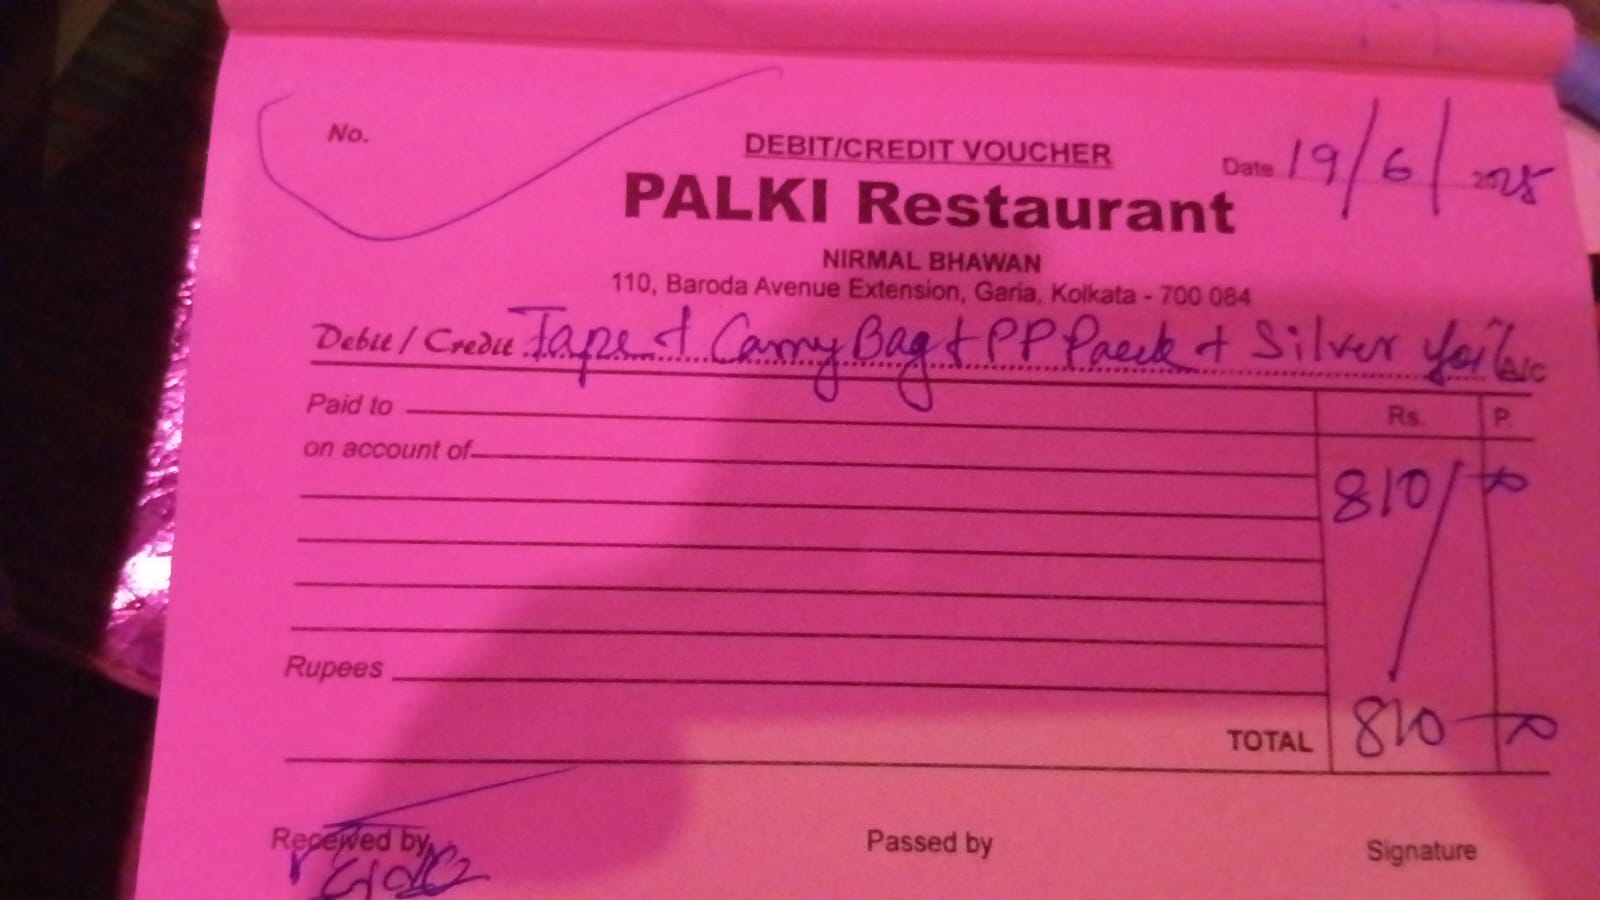 No.
DEBIT/CREDIT VOUCHER
Date 19/6/2025
PALKI Restaurant
NIRMAL BHAWAN
110, Baroda Avenue Extension, Garia, Kolkata - 700 084
Debit / Credit Tape + Carry Bag + PP Paeck + Silver foil A/C
Paid to
Rs. P.
on account of
810/
Rupees
TOTAL 810
Received by Passed by Signature